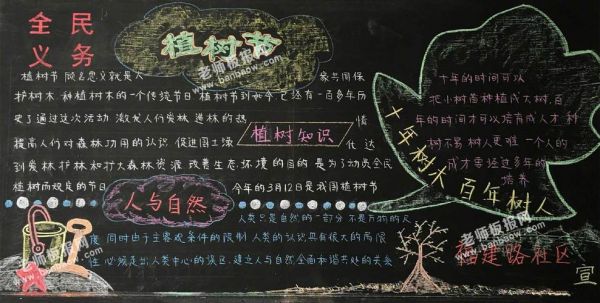 全民
义务
植树节
植树节 顾名思义就是人 象与倒保
护树木 种植树木的一个传统节日 植树节到如今 已经有一百多年历
史了通过这次活动 激发人们爱林 造林的热 情
提高人们对森林功用的认识 促进国土绿 化 达
到爱林 护林和扩大森林资源 改善生态 环境的目的 是为了动员全民
植树而规定的节日 今年的3月12日是我国植树节
植树知识
十年的时间可以
把小树苗种植成大树,百
年的时间才可以培育成人才 种
树不易 树人更难 一个人的
成才需经过多年的
培养
十年树木 百年树人
人与自然
人类只是自然的一部分 不是万物的尺
度 同时由于主客观条件的限制 人类的认识具有很大的局限
性 必须走出人类中心的误区 建立人与自然全面和谐共处的关系
福建路社区
宣
老师板报网
banbaow.com
老师板报网
banbaow.com
老师板报网
banbaow.com
老师板报网
banbaow.com